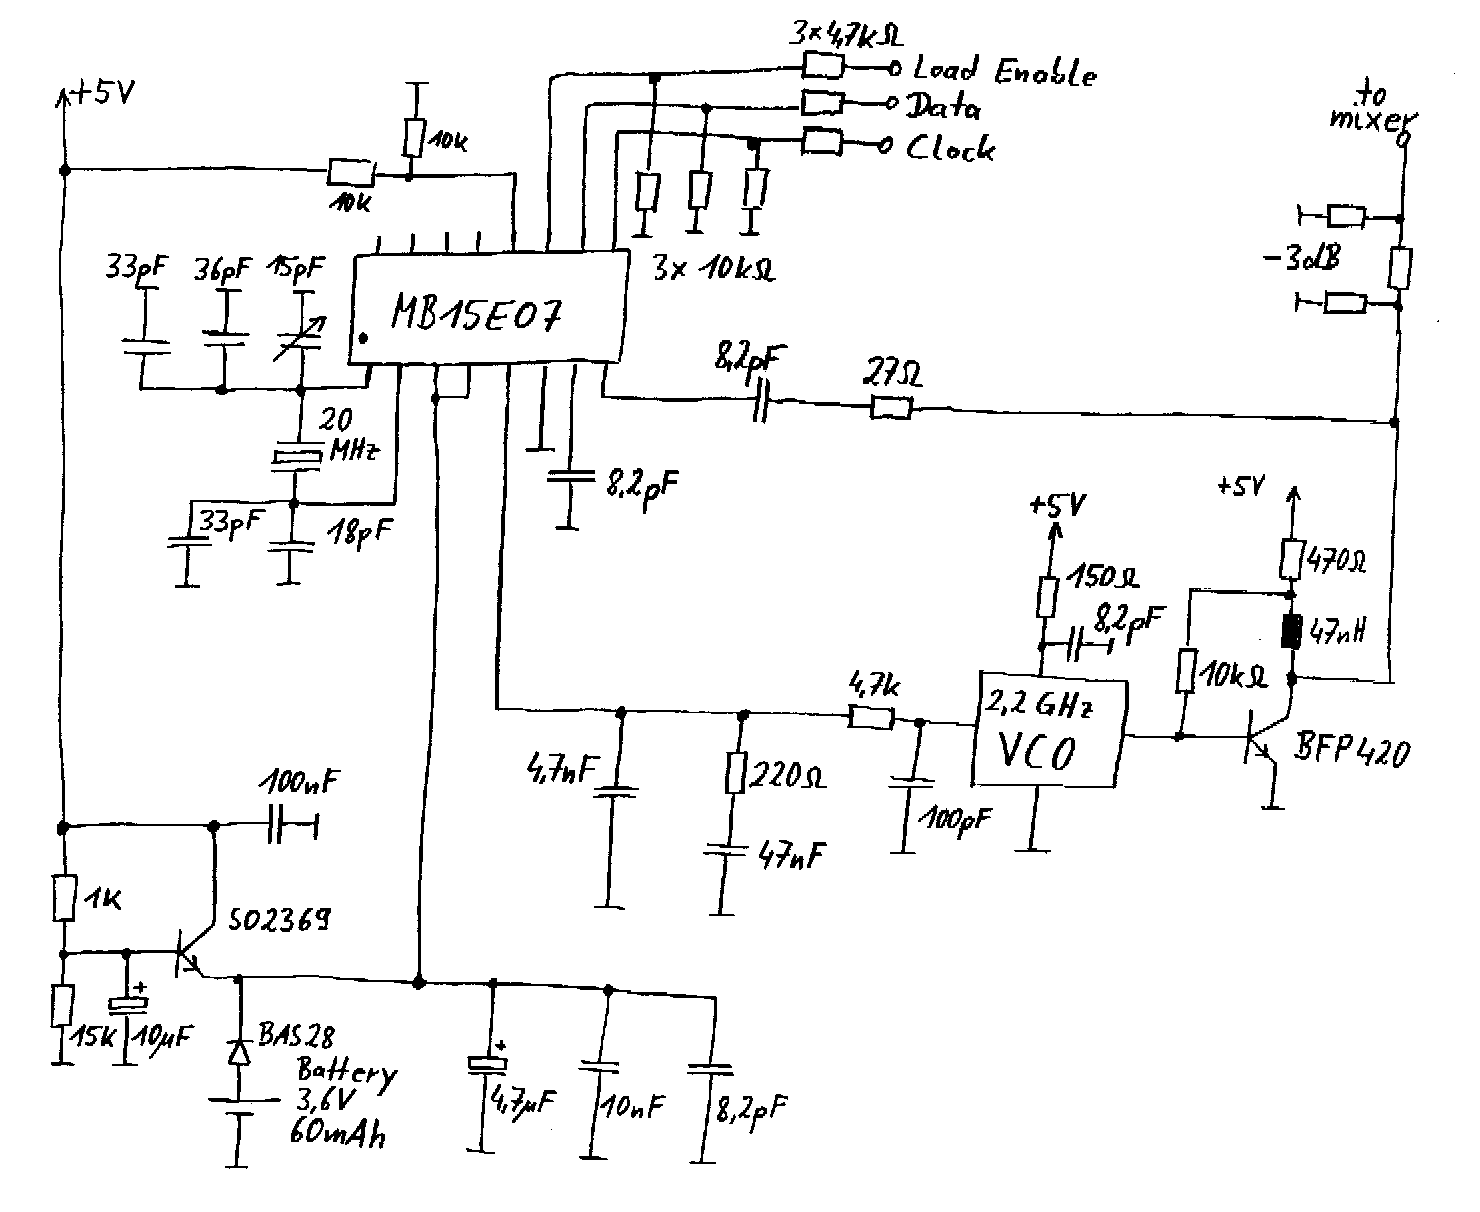 3×4,7kΩ
+5V
Load Enable
Data
Clock
to
mixer
10k
10k
33pF
36pF
15pF
3× 10kΩ
-3dB
MB15E07
8,2pF
27Ω
20
MHz
8,2pF
+5V
+5V
33pF
18pF
150Ω
470Ω
8,2pF
47nH
10kΩ
4,7k
2,2 GHz
VCO
BFP420
4,7nF
220Ω
100nF
100pF
47nF
1K
SO2369
+
15K
10µF
BAS28
+
Battery
3,6V
60mAh
4,7µF
10nF
8,2pF